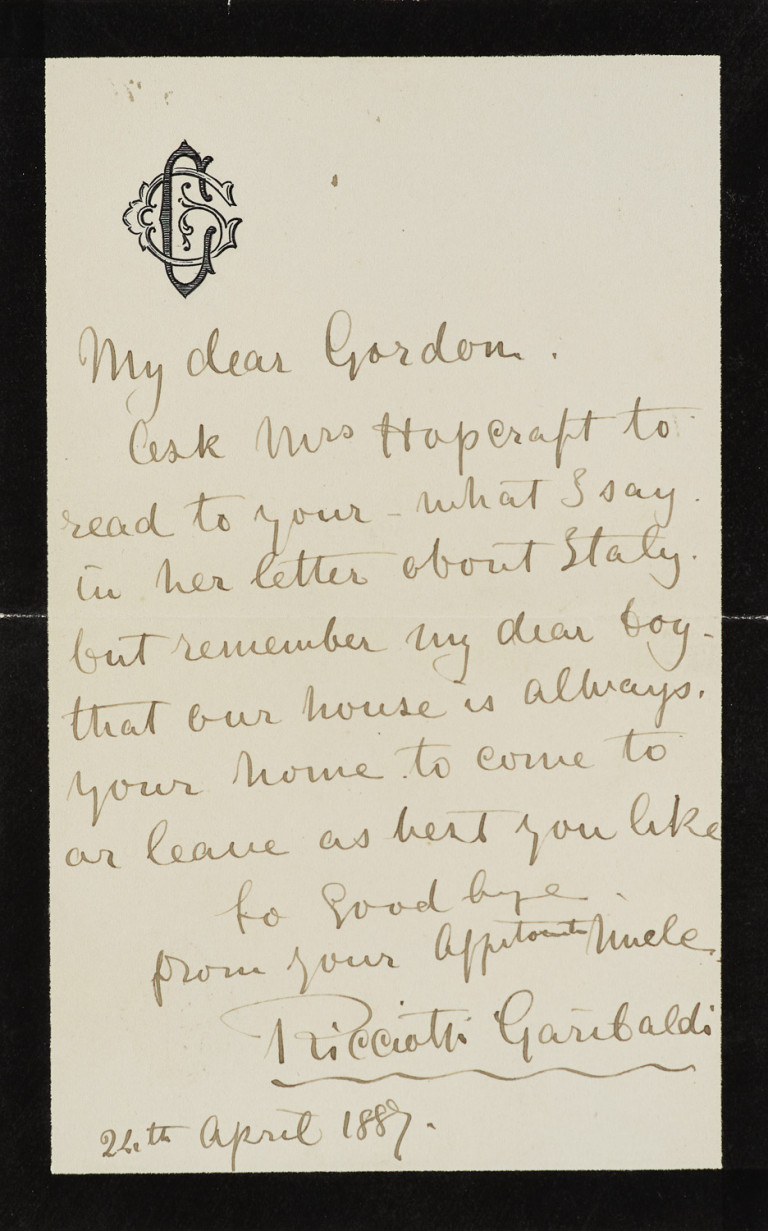 My dear Gordon.
Ask Mrs Hopcraft to
read to your - what I say.
in her letter about Italy.
but remember my dear boy-
that our house is always.
your home to come to
or leave as best you like
So Good bye.
from your Uncle.
Ricciotti Garibaldi
24th April 1887.